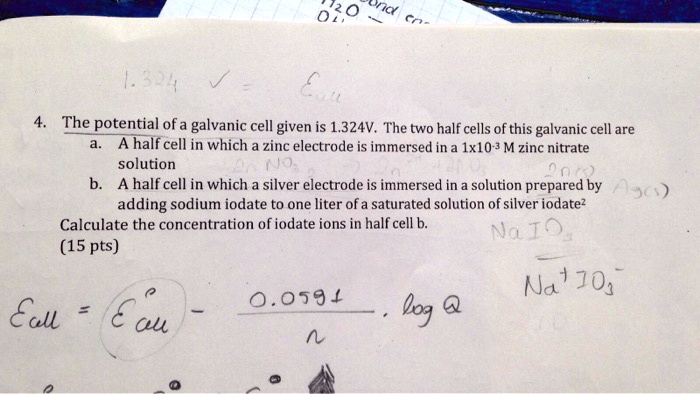 H2O
1.324 V = Ecell
4. The potential of a galvanic cell given is 1.324V. The two half cells of this galvanic cell are
a. A half cell in which a zinc electrode is immersed in a 1x10-³ M zinc nitrate
solution
Zn(s)
b. A half cell in which a silver electrode is immersed in a solution prepared by Ag(s)
adding sodium iodate to one liter of a saturated solution of silver iodate²
Calculate the concentration of iodate ions in half cell b.
NaIO3
(15 pts)
Na⁺IO3⁻
Ecell = E°cell - 0.0591/n . log Q